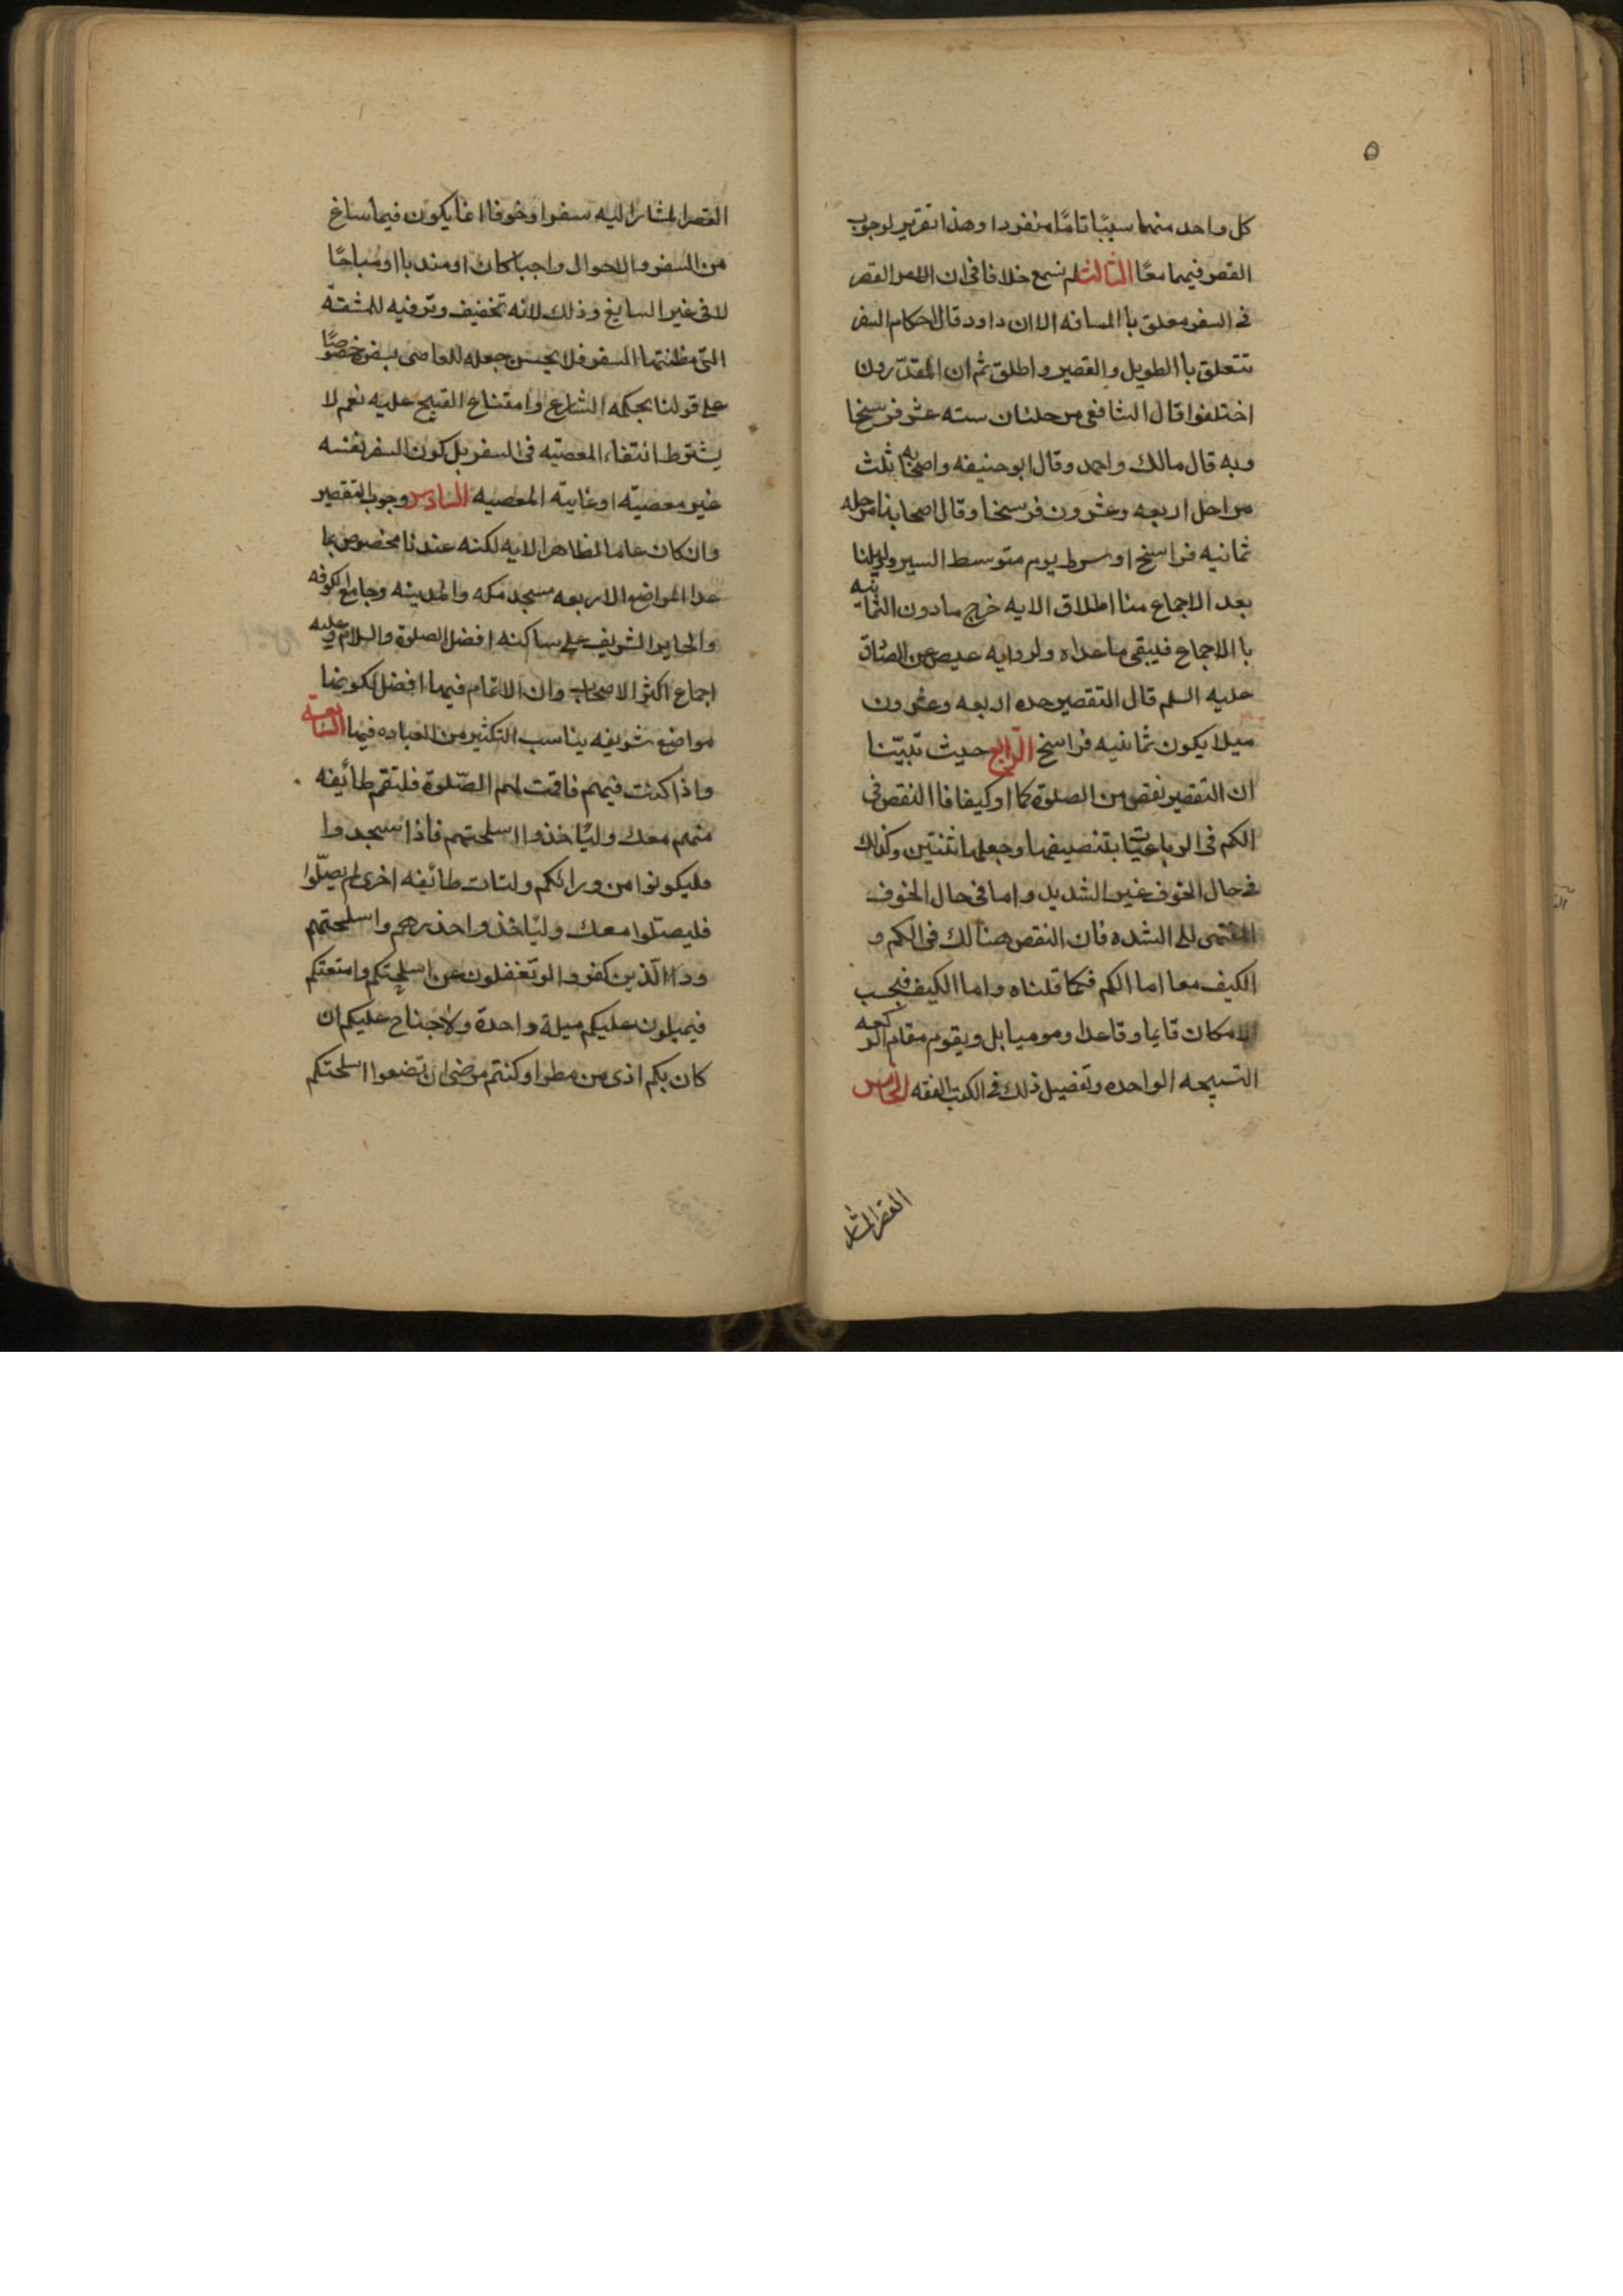 ٥
كل واحد منهما سببًا تامًا منفردا وهذا تقرير لوجوب
القصر فيهما معًا الثالث لم نسمع خلافا فى ان القصر
فى السفر معلق با المسافه الا ان داود قال احكام السفر
تتعلق با الطويل والقصير واطلق ثم ان المقدّرون
اختلفوا قال الشافعى مرحلتان سته عشر فرسخا
وبه قال مالك واحمد وقال ابو حنيفه واصحابه ثلث
مراحل اربعه وعشرون فرسخا وقال اصحابنا مرحله
ثمانيه فراسخ او يوم متوسط السير ودليلنا
بعد الاجماع منا اطلاق الايه خرج مادون الثمانيه
با الاجماع فيبقى ماعداه ولروايه عيص عن الصادق
عليه السلم قال التقصير حده اربعه وعشرون
ميلا يكون ثمانيه فراسخ الرّابع حيث تبيّنا
ان التقصير نقص من الصلوة كما او كيفا فا النقص فى
الكم فى الرباعيّات بتنصيفها وجعلها اثنتين وكذلك
فى حال الخوف غير الشديد واما فى حال الخوف
المنتهى الى الشده فان النقص هنالك فى الكم و
الكيف معا اما الكم فكما قلناه واما الكيف فبحسب
الامكان قايما وقاعدا وموميا بل ويقوم مقام الركعه
التسبيحه الواحده وتفصيل ذلك فى الكتب الفقه الخامس
القصر المشار
القصر المشار اليه سفرا وخوفا انما يكون فيما ساغ
من السفر والاحوال واجبا كان او مندبا او مباحًا
لا فى غير السايغ وذلك لانه تخفيف وترفيه للمشقّة
التى مظنتها السفر فلا يحسن جعله للعاصى بسفره خصوصًا
على قولنا بحكمه الشارع وامتناع القبيح عليه نعم لا
يشترط انتفاء المعصيه فى السفر بل كون السفر نفسه
غير معصيته او غايته المعصيه السادس وجوب التقصير
وان كان عاما لظاهر الايه لكنه عندنا مخصوص بما
عدا المواضع الاربعه مسجد مكه والمدينه وجامع الكوفه
والحاير الشريف على ساكنه افضل الصلوة والسلام وعليه
اجماع اكثر الاصحاب وان الاتمام فيها افضل لكونها
مواضع شريفه يناسب التكثير من العباده فيها السّابعة
واذا كنت فيهم فاقمت لهم الصّلوة فلتقم طائفه
منهم معك وليأخذوا اسلحتهم فاذا سجدوا
فليكونوا من ورائكم ولتات طائفه اخرى لم يصلّوا
فليصلّوا معك وليأخذوا حذرهم واسلحتهم
ودا الّذين كفروا لو تغفلون عن اسلحتكم وامتعتكم
فيميلون عليكم ميلة واحدة ولا جناح عليكم ان
كان بكم اذى من مطر او كنتم مرضى ان تضعوا اسلحتكم